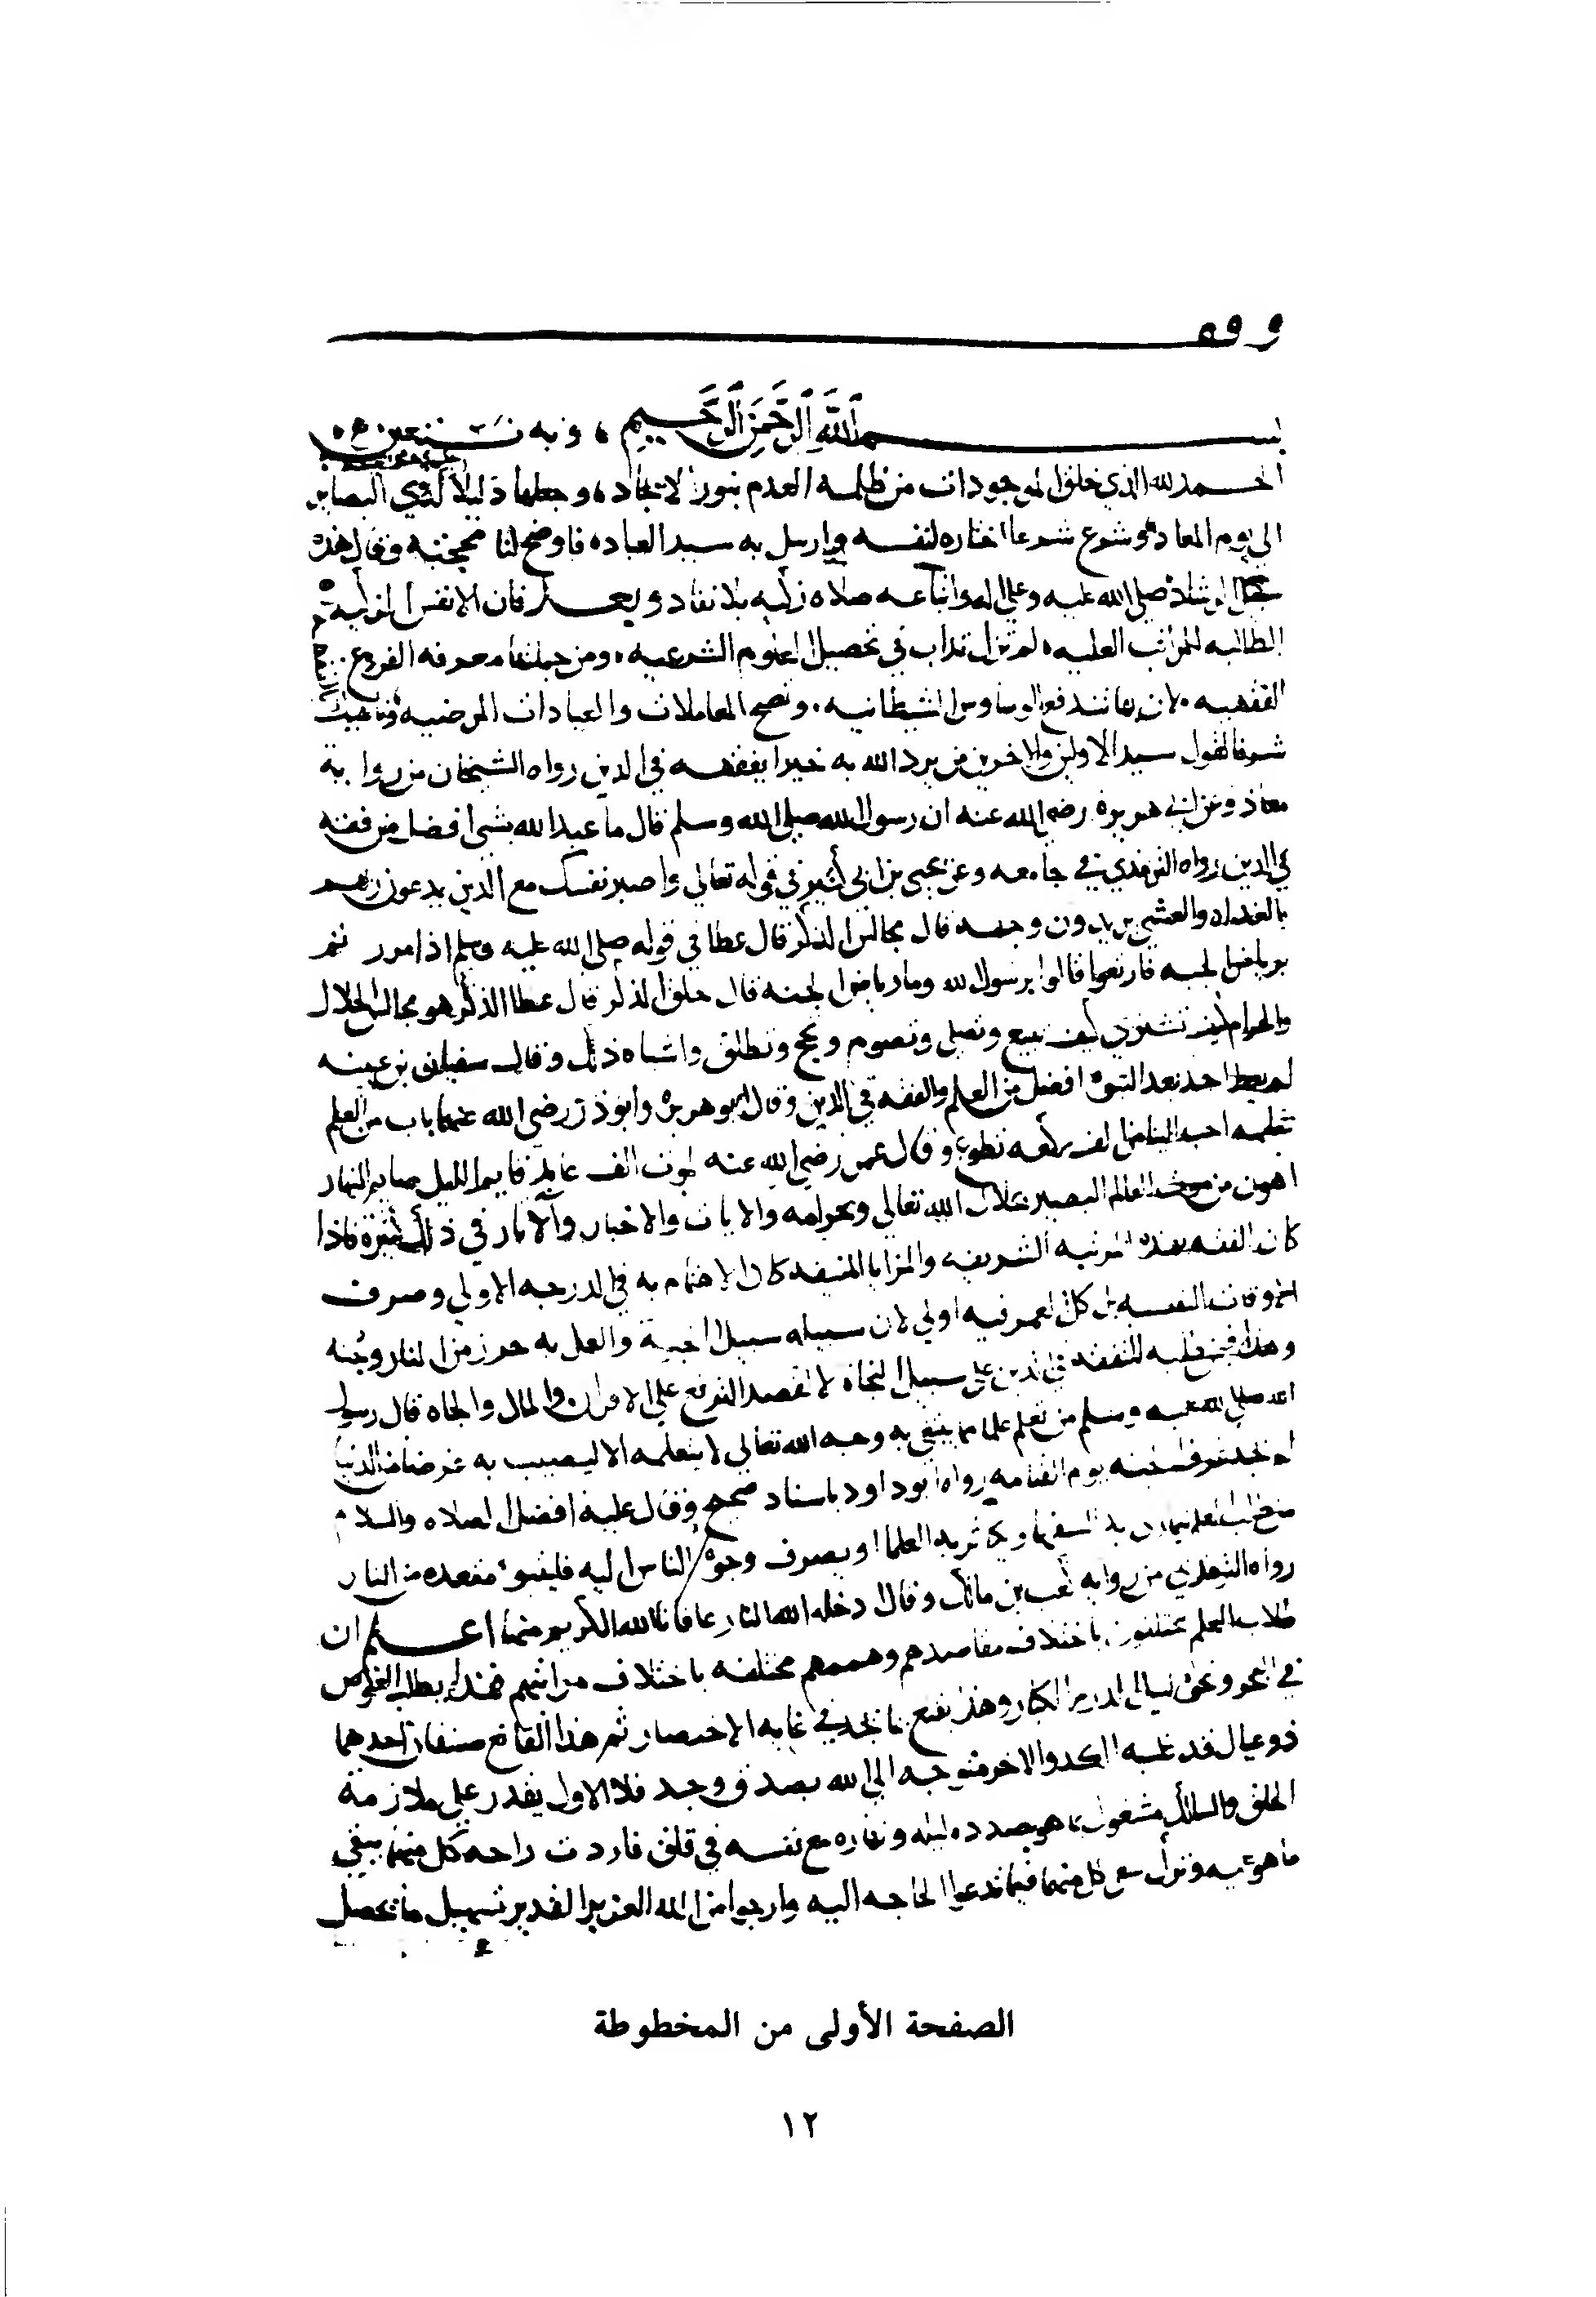 وقف
بسم الله الرحمن الرحيم، وبه نستعين
الحمد لله الذي خلق الموجودات من ظلمه العدم بنور الايجاد، وجعلها دليلا لذوي البصاير
الي يوم المعاد وشرع شرعا اختاره لنفسه وارسل به سيد العباد، فاوضح لنا محجته وقال هذه
سبيل الرشاد صلي الله عليه وعلي اله واتباعه صلاه زاكيه بلا نفاد وبعد فان الانفس الزكيه
الطالبه للمراتب العليه، لم تزل تداب في تحصيل العلوم الشرعيه، ومن جملتها معرفه الفروع
الفقهيه، لان بها تندفع الوساوس الشيطانيه، وتصح المعاملات والعبادات المرضيه، وناهيك
شرفا لقول سيد الاولين والاخرين من يرد الله به خيرا يفقهه في الدين رواه الشيخان من رواية
معاذ وعن ابي هريره رضي الله عنه ان رسول الله صلي الله وسلم قال ما عبد الله بشي افضل من فقه
في الدين رواه الترمذي في جامعه وعن يحيى بن ابي كثير في قوله تعالي واصبر نفسك مع الذين يدعون ربهم
بالغداه والعشي يريدون وجهه قال مجالس الذكر قال عطا في قوله صلي الله عليه وسلم اذا مررتم
برياض الجنه فارتعوا قالوا يرسول الله وما رياض الجنه قال حلق الذكر قال عطا الذكر هو مجالس الحلال
والحرام كيف تشتري كيف تبيع وتصلي وتصوم وتحج وتطلق واشباه ذلك وقال سفيان بن عيينه
لم يعط احد بعد النبوه افضل من العلم والفقه في الدين وقال ابو هريره وابو ذر رضي الله عنهما باب من العلم
نتعلمه احب الينا من الف ركعه تطوع وقال عمر رضي الله عنه لموت الف عابد قايم الليل صايم النهار
اهون من موت العالم البصير بحلال الله تعالي وبحرامه والايات والاخبار والاثار في ذلك كثيره فاذا
كان الفقه بهذه المرتبه الشريفه والمزايا المنيفه كان الاهتمام به في الدرجه الاولي وصرف
الاوقات النفيسه بل كل العمر فيه اولي لان سبيله سبيل الجنة والعمل به حرز من النار وجنه
وهذا لمن طلبه للتفقه في الدين علي سبيل النجاه لا لقصد الترفع علي الاقران والمال والجاه قال رسول
الله صلي الله عليه وسلم من تعلم علما مما يبتغي به وجه الله تعالي لا يتعلمه الا ليصيب به غرضا من الدنيا
لم يجد عرف الجنه يوم القيامه رواه ابو داود باسناد صحيح وقال عليه افضل الصلاه والسلام
من طلب العلم ليماري به السفها ويكاثر به العلما او يصرف وجوه الناس اليه فليتبوا مقعده من النار
رواه الترمذي من روايه كعب بن مالك وقال ادخله الله النار عافانا الله الكريم منها اعلم ان
طلاب العلم مختلفون باختلاف مقاصدهم وهممهم مختلفه باختلاف مراتبهم فهذا يطلب الغوص
في البحر ونحوه لنيل الدرر الكبار وهذا يقنع بما يجد في غايه الاختصار ثم هذا القانع صنفان احدهما
ذو عيال قد غلبه الكد والاخر متوجه الي الله بصدق وجد فلا الاول يقدر علي ملازمة
الحلق والسالك مشغول بما هو بصدده ليله ونهاره مع نفسه في قلق فاردت راحه كل منهما ببقي
ما هو فيه وترك سع كل منهما فيما تدعوا الحاجه اليه وارجوا من الله العزيز القدير تسهيل ما يحصل
الصفحة الأولى من المخطوطة
١٢